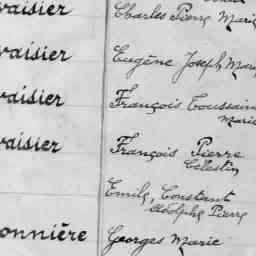 vaisier Charles Pierre Marie
vaisier Eugène Joseph Mar
vaisier François Toussain
Marie
vaisier François Pierre
Célestin
Emile, Constant
Adolphe Pierre
onnière Georges Marie